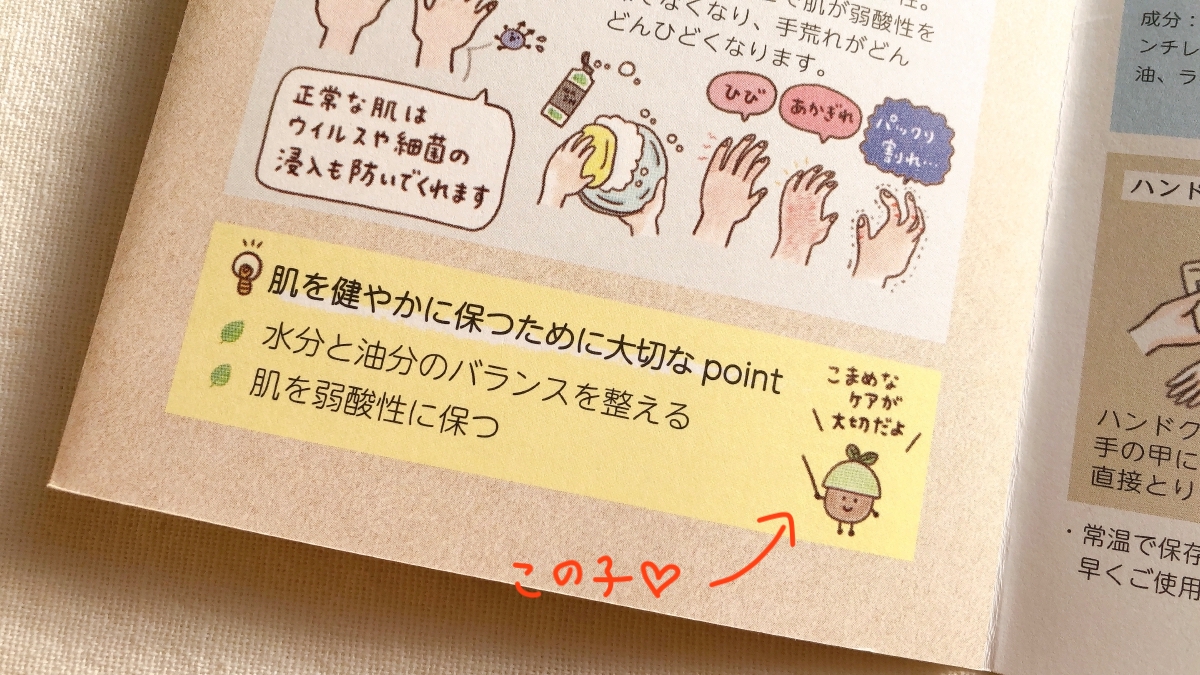 で肌が弱酸性を
でなくなり、手荒れがどん
どんひどくなります。
正常な肌は
ウイルスや細菌の
浸入も防いでくれます
ひび
あかぎれ
パックリ
割れ…
肌を健やかに保つために大切な point
水分と油分のバランスを整える
肌を弱酸性に保つ
こまめな
ケアが
大切だよ
この子♡
成分：
ンチレ
油、ラ
ハンド
ハンドク
手の甲に
直接とり
・常温で保存
早くご使用